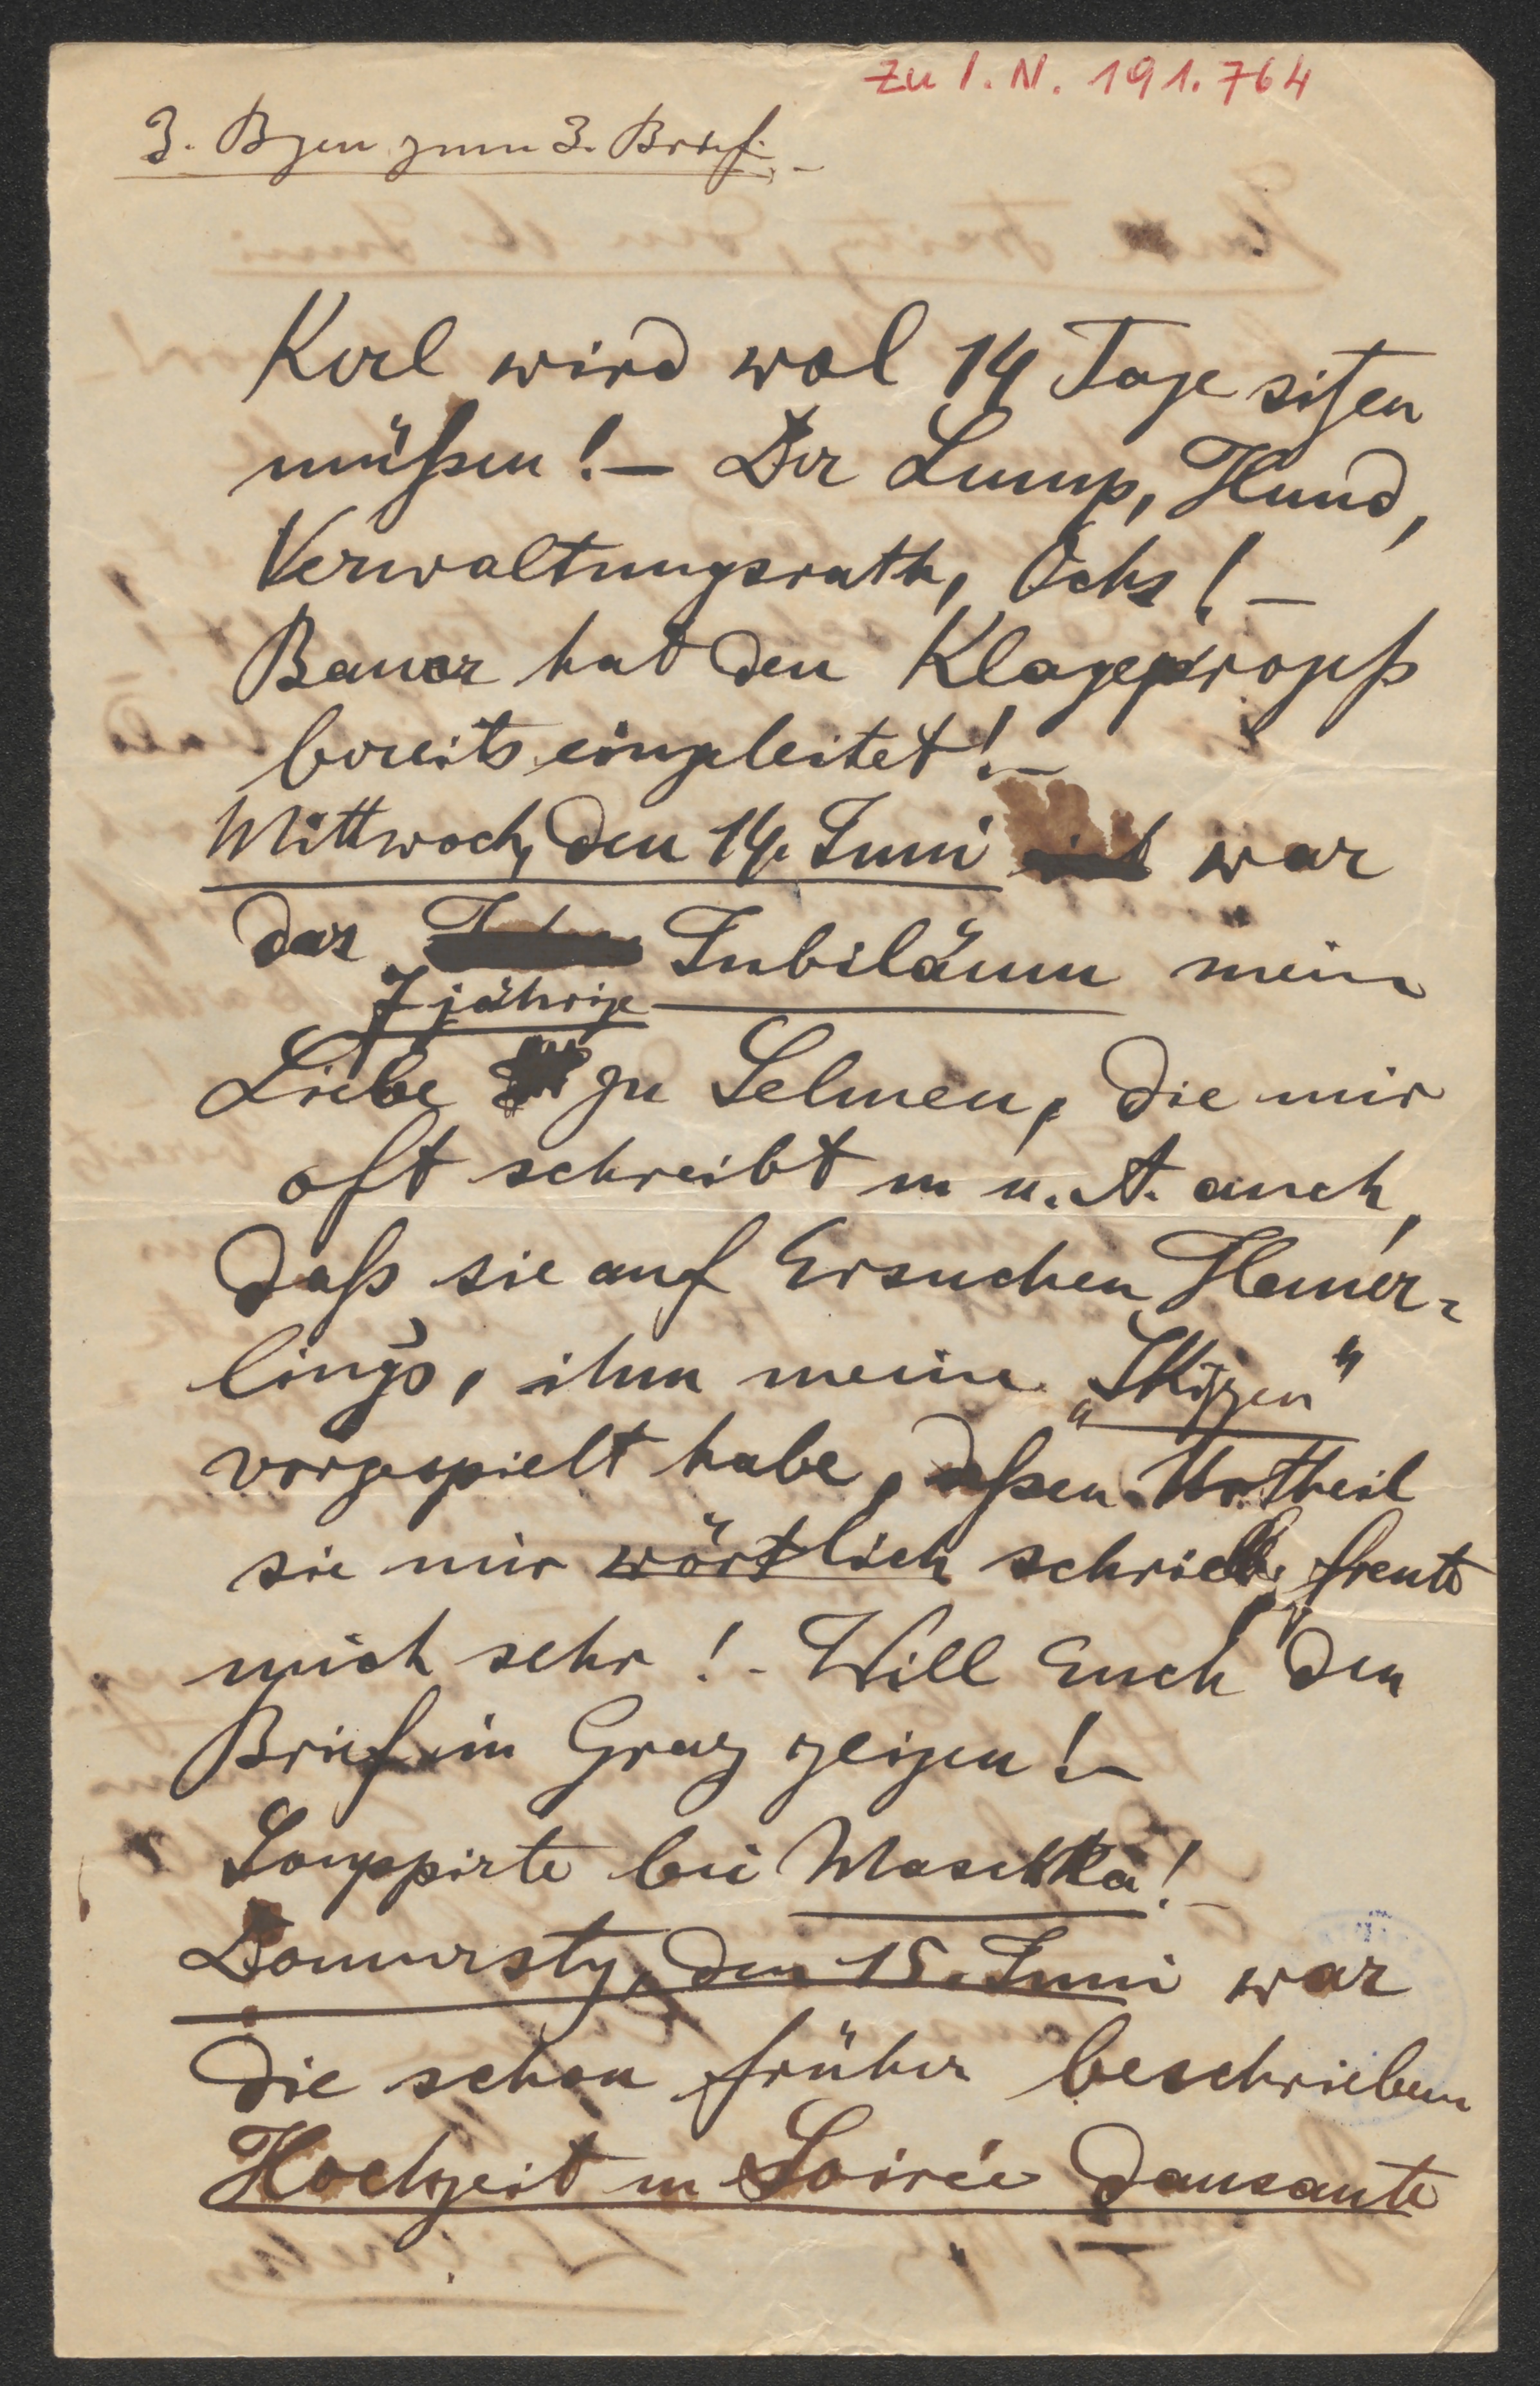 Zu I. N. 191.764
3. Bgen zum 3. Brief.
Kerl wird wol 14 Tage sitzen
müßen! – Der Lump, Hund,
Verwaltungsrath, Ochs! –
Bauer hat den Klageprozeß
bereits eingeleitet! –
Mittwoch, den 14. Juni war
das Jubiläum mein
7 jährige
Liebe zu Selmen, die mir
oft schreibt u u. A. auch,
daß sie auf Ersuchen Hemer-
ling's, ihm meine „Skizzen"
vorgespielt habe, deßen Urtheil
sie mir wörtlich schrieb, freute
mich sehr! - Will Euch den
Brief in Graz zeigen! –
Souppirte bei Maschka! –
Donnerstg, den 15. Juni war
die schon früher beschrieben
Hochzeit u Soirée dansante